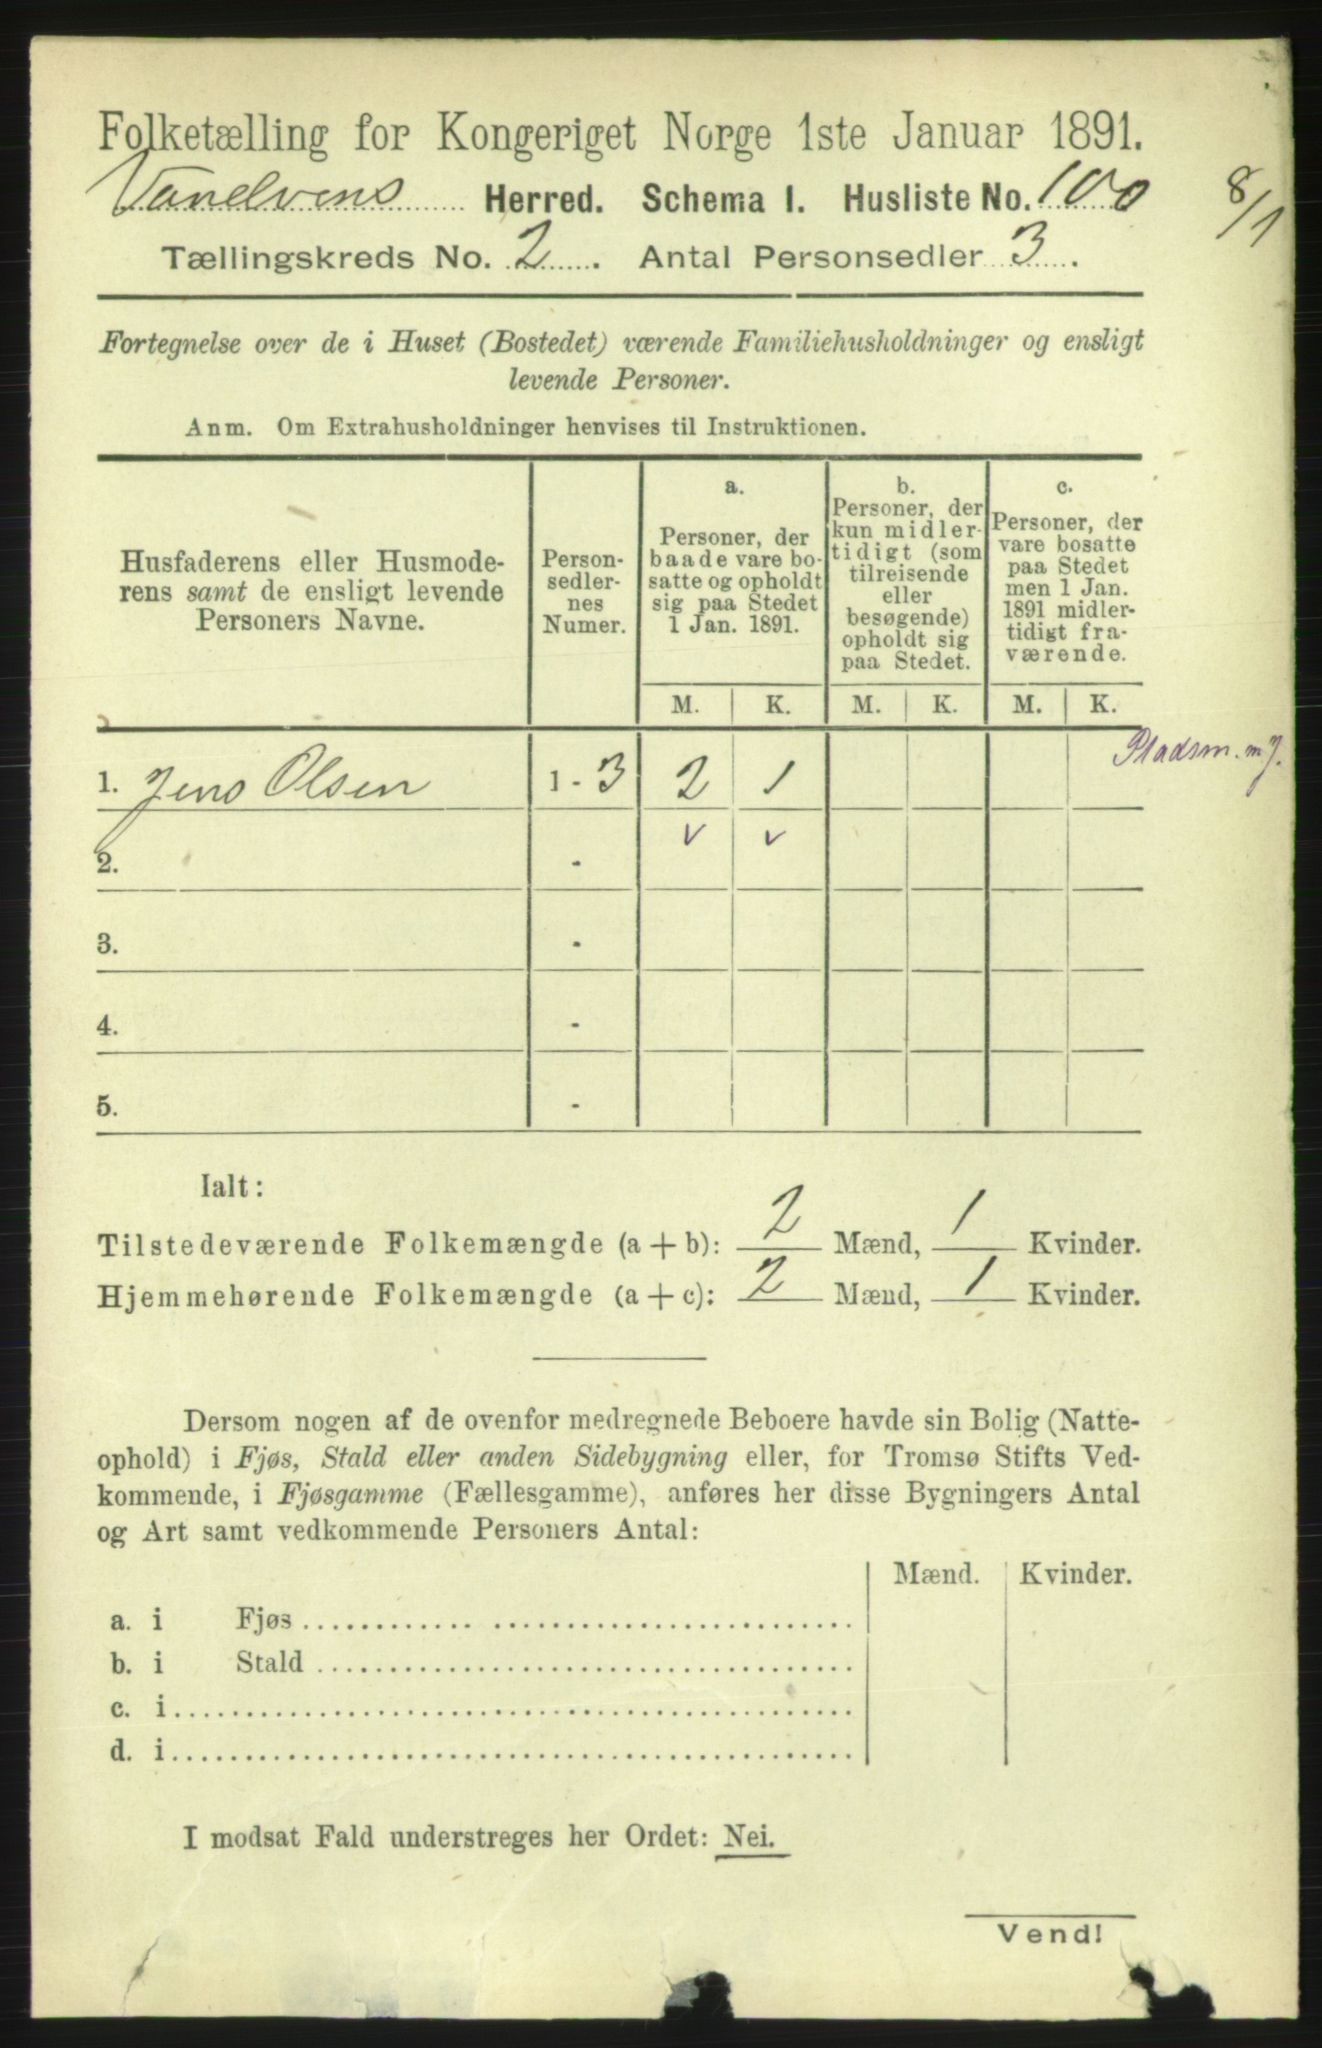 Folketælling for Kongeriget Norge 1ste Januar 1891.
Vanelvens Herred. Schema I. Husliste No. 100
8/1
Tællingskreds No. 2. Antal Personsedler 3.
Fortegnelse over de i Huset (Bostedet) værende Familiehusholdninger og ensligt
levende Personer.
Anm. Om Extrahusholdninger henvises til Instruktionen.
Husfaderens eller Husmode-
rens samt de ensligt levende
Personers Navne.
Person-
sedler-
nes
Numer.
a.
Personer, der
baade vare bo-
satte og opholdt
sig paa Stedet
1 Jan. 1891.
b.
Personer, der
kun midler-
tidigt (som
tilreisende
eller
besøgende)
opholdt sig
paa Stedet.
c.
Personer, der
vare bosatte
paa Stedet
men 1 Jan.
1891 midler-
tidigt fra-
værende.
M. K. M. K. M. K.
Pladsm. m J.
1. Jens Olsen 1 - 3 2 1
2. - v v
3. -
4. -
5. -
Ialt:
Tilstedeværende Folkemængde (a + b): 2 Mænd, 1 Kvinder.
Hjemmehørende Folkemængde (a + c): 2 Mænd, 1 Kvinder.
Dersom nogen af de ovenfor medregnede Beboere havde sin Bolig (Natte-
ophold) i Fjøs, Stald eller anden Sidebygning eller, for Tromsø Stifts Ved-
kommende, i Fjøsgamme (Fællesgamme), anføres her disse Bygningers Antal
og Art samt vedkommende Personers Antal:
Mænd. Kvinder.
a. i Fjøs
b. i Stald
c. i
d. i
I modsat Fald understreges her Ordet: Nei.
Vend!